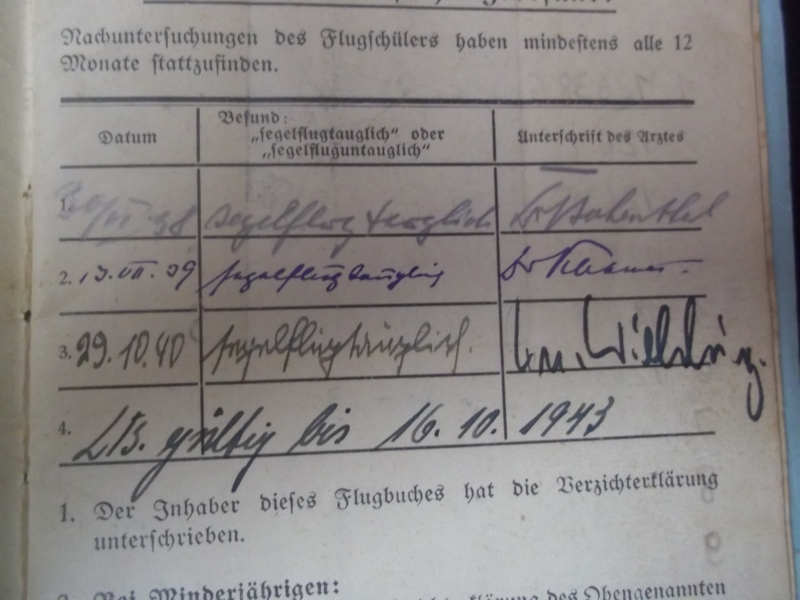 Nachuntersuchungen des Flugschülers haben mindestens alle 12
Monate stattzufinden.
Datum
Befund:
„segelflugtauglich“ oder
„segelfluguntauglich“
Unterschrift des Arztes
1. segelflugtauglich
2. 13. VII. 39 segelflugtauglich Dr
3. 29.10.40 segelflugtauglich.
4. gültig bis 16. 10. 1943
1. Der Inhaber dieses Flugbuches hat die Verzichterklärung
unterschrieben.
2. Bei Minderjährigen:
des Obengenannten